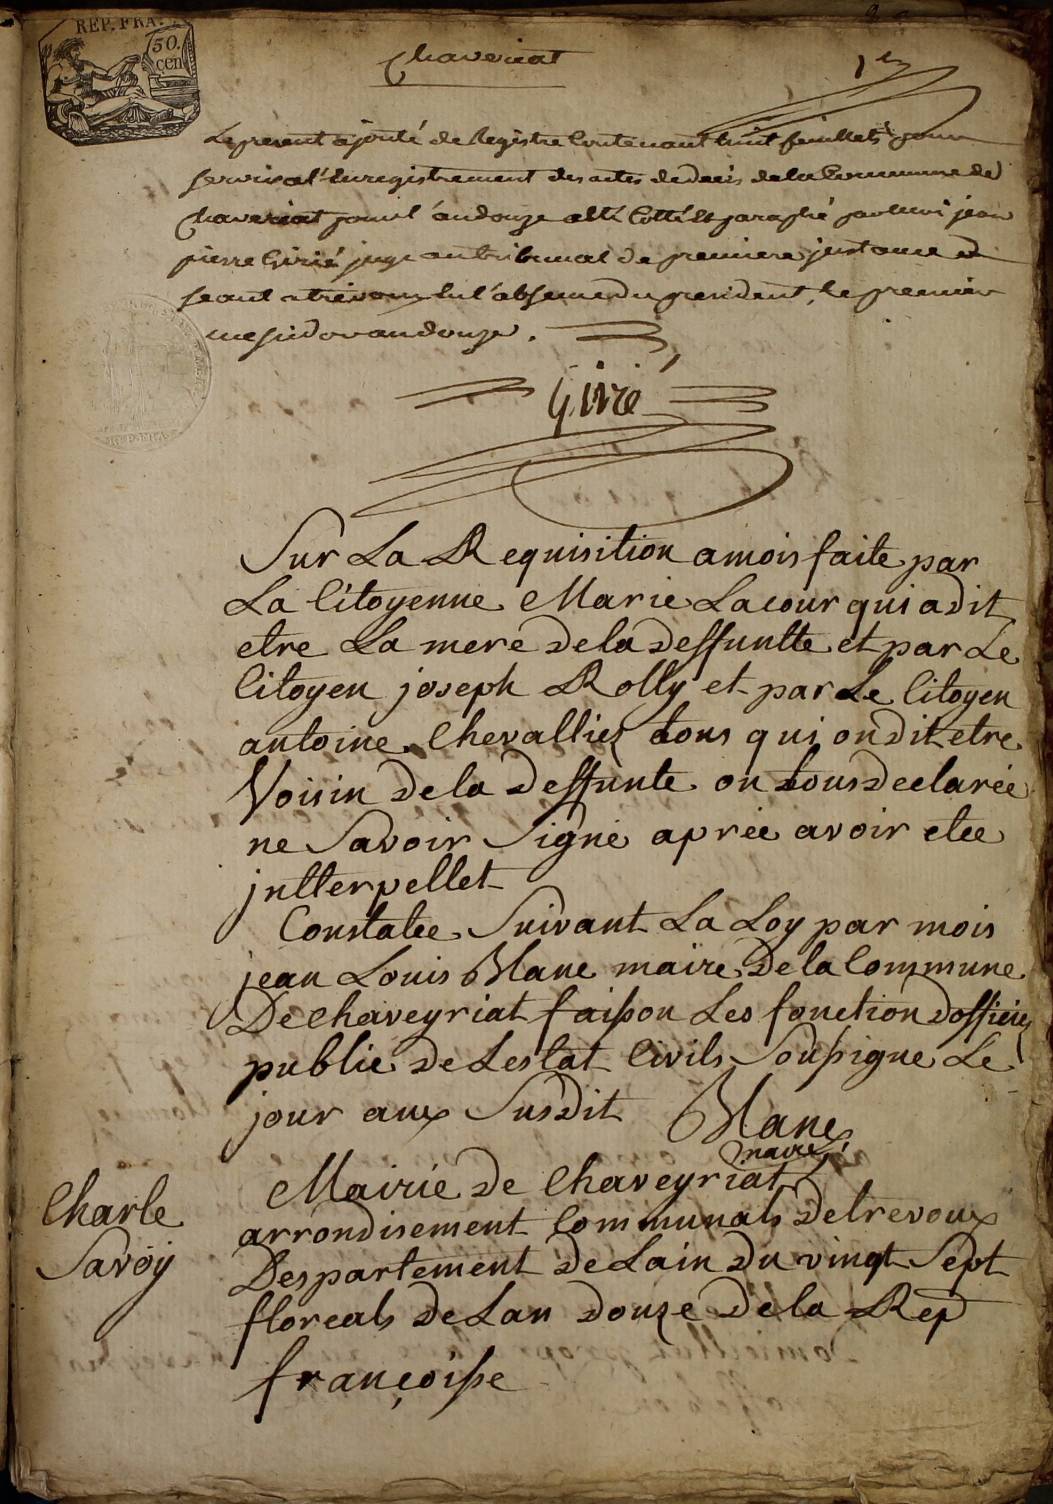 REP. FRA.
50.
cen
Chaveriat
1er
Le present ajouté de Registre Contenant huit feuillets pour
servir a l'Enregistrement des actes de deces de la Commune de
Chaveriat pour l'an douze a été Cotté et paraphé par nous jean
pierre Girié juge au tribunal de premiere jnstance
seant a trevoux l'absence du president, le premier
messidor an douze.
Girié
Sur La Requisition a mois faite par
La Citoyenne Marie Lacour qui a dit
etre La mere de la deffuntte et par Le
Citoyen joseph Rolly et par Le Citoyen
antoine Chevallier tous qui on dit etre
Voisin de la deffunte on tous declarée
ne Savoir Signé aprée avoir etee
jntterpellet
Constatee Suivant La Loy par mois
jean Louis Blanc maire De la Commune
De Chaveyriat faisson Les fonction dofficier
public de Lestat Civils Soussigne Le
jour aux Susdit Blanc
maire
Mairie de Chaveyriat
arrondisement Communals De trevoux
Despartement de Lain du vingt Sept
floreals de Lan douze de la Rep
françoisse
Charle
Savoÿ